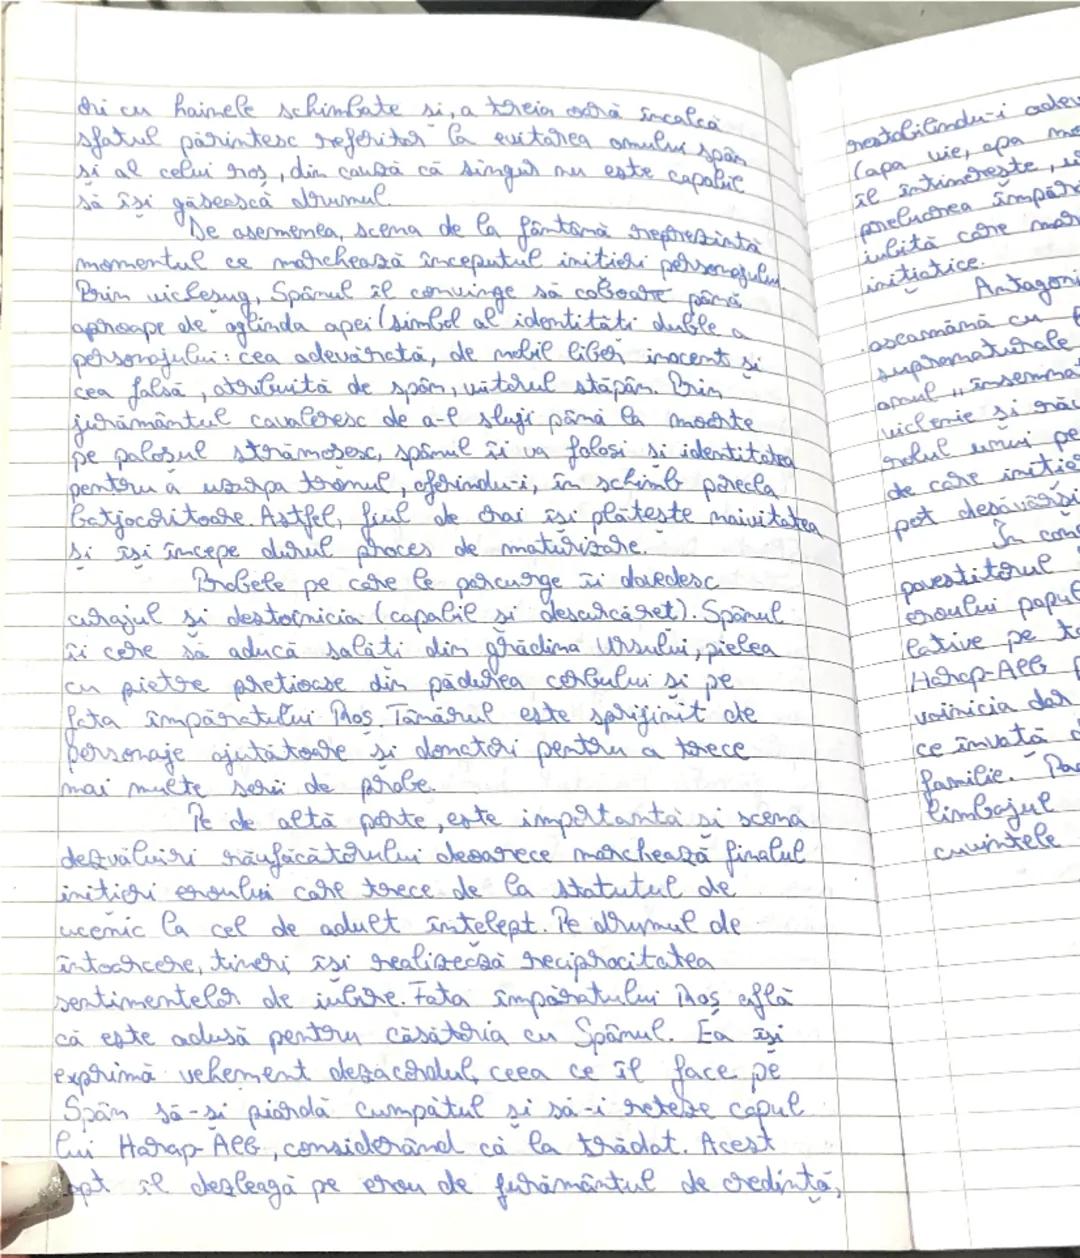 ori cu hainele schimbate si, a treia oară încalcă
sfatul părintesc referitor la evitarea omului spân
și al celui roș, din cauză că singur nu este capabil
să își găsească drumul.
De asemenea, scena de la fântână reprezintă
momentul ce marchează începutul inițieri personajului.
Prin vicleșug, Spânul îl convinge să coboare până
aproape de oglinda apei (simbol al identități duble a
personajului: cea adevărată, de nobil liber inocent și
cea falsă, atribuită de spân, viitorul stăpân. Prin
jurământul cavaleresc de a-l sluji până la moarte
pe paloșul strămoșesc, spânul îi va folosi și identitatea
pentru a uzurpa tronul, oferindu-i, în schimb porecla
batjocoritoare. Astfel, fiul de crai își plătește naivitatea
și își începe durul proces de maturizare.
Probele pe care le parcurge îi dovedesc
curajul și destoinicia (capabil și descurcăret). Spânul
îi cere să aducă salăți din grădina Ursului, pielea
cu pietre prețioase din pădurea cerbului și pe
fata împăratului Roș. Tânărul este sprijinit de
personaje ajutătoare și donatori pentru a trece
mai multe serii de probe.
Pe de altă parte, este importantă și scena
dezvăluiri răufăcătorului deoarece marchează finalul
inițieri eroului care trece de la statutul de
ucenic la cel de adult înțelept. Pe drumul de
întoarcere, tineri își realizează reciprocitatea
sentimentelor de iubire. Fata împăratului Roș află
că este adusă pentru căsătoria cu Spânul. Ea își
exprimă vehement dezacordul, ceea ce îl face pe
Spân să-și piardă cumpătul și să-i reteze capul
lui Harap-Alb, considerând că la trădat. Acest
fapt îl dezleagă pe erou de jurământul de credință,
restabilindu-i adev
(apa vie, apa mo
îl întinerește,
preluarea împăr
iubită care mar
inițiatice.
Antagoni
aseamănă cu
supranaturale
omul „însemna
viclenie și rău
rolul unui pe
de care iniție
pot desăvârși
În con
povestitorul
eroului popul
lative pe t
Harap-Alb
voinicia dar
ce învață
familie. Pa
limbajul
cuvintele